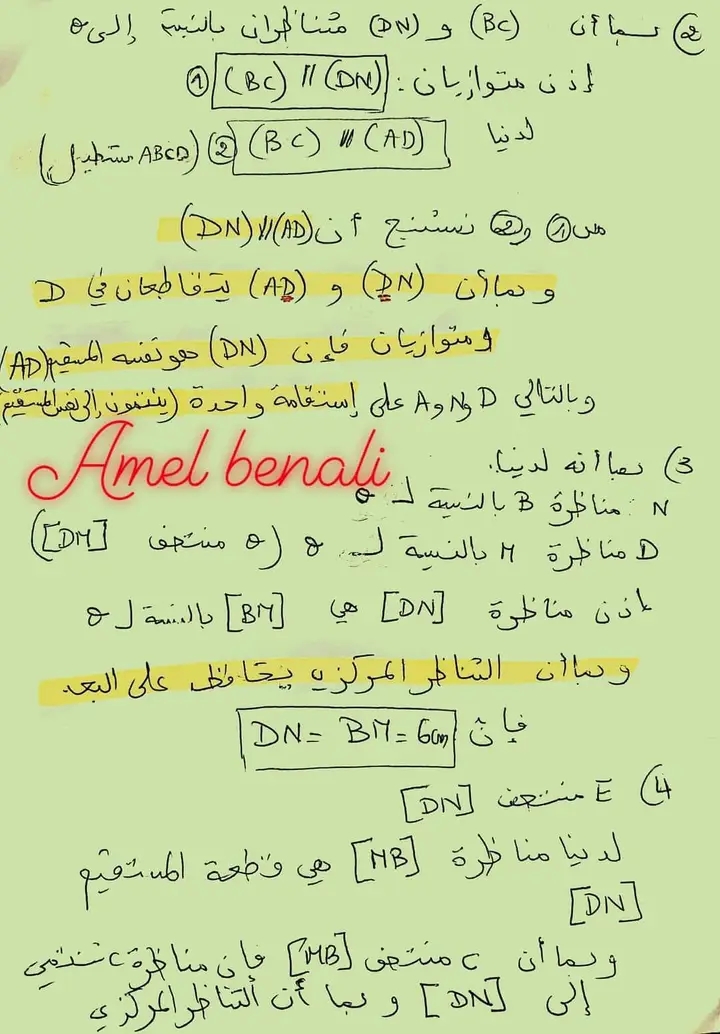 2) بما أن (BC) و (DN) متناظران بالنسبة إلى O
إذن متوازيان : (BC) // (DN) ①
لدينا (BC) // (AD) ② (ABCD مستطيل)
من ① و ② نستنتج أن (AD) // (DN)
و بما أن (DN) و (AD) يتقاطعان في D
و متوازيان فإن (DN) هو نفسه المستقيم (AD)
و بالتالي D و N و A على إستقامة واحدة (ينتمون إلى نفس المستقيم
Amel benali
3) بما أنه لدينا.
N : مناظرة B بالنسبة لـ O
D مناظرة M بالنسبة لـ O (O منتصف [DM])
إذن مناظرة [DN] هي [BM] بالنسبة لـ O
و بما أن التناظر المركزي يحافظ على البعد
فإن DN = BM = 6cm
4) E منتصف [DN]
لدينا مناظرة [MB] هي قطعة المستقيم
[DN]
و بما أن C منتصف [MB] فإن مناظرة C تنتمي
إلى [DN] و بما أن التناظر المركزي